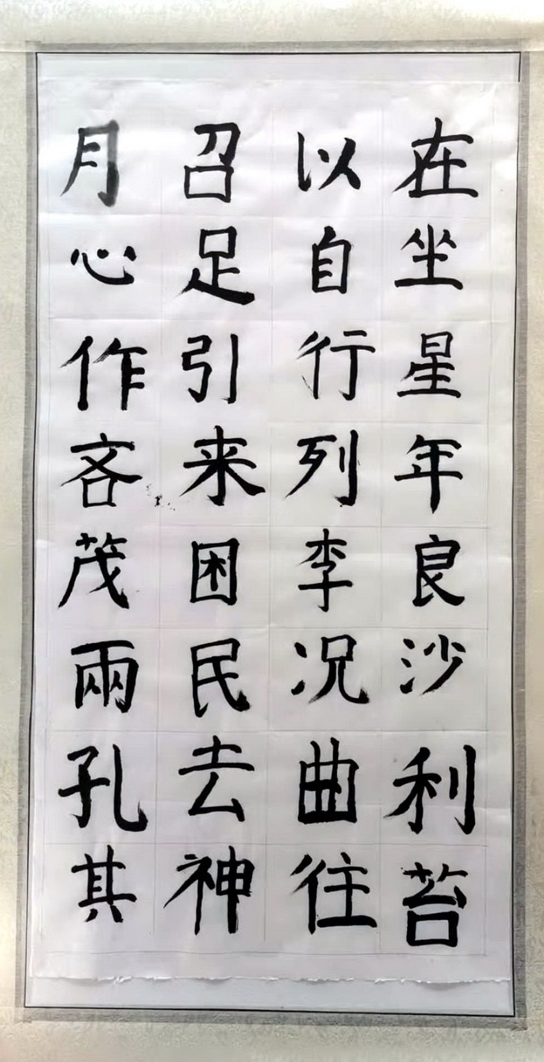 在坐星年良沙利苔
以自行列李况曲往
召足引来困民去神
月心作吝茂兩孔其